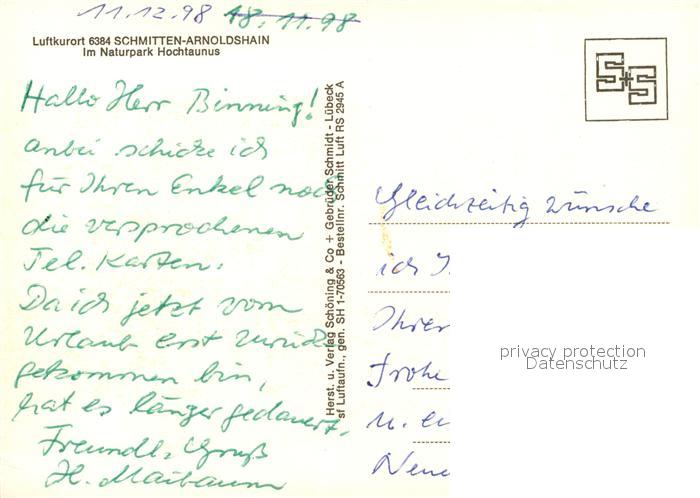 11.12.98 18.11.98
Luftkurort 6384 SCHMITTEN-ARNOLDSHAIN
Im Naturpark Hochtaunus
Hallo Herr Binning!
anbei schicke ich
für Ihren Enkel noch
die versprochenen
Tel. Karten.
Da ich jetzt vom
Urlaub erst zurück
gekommen bin,
hat es länger gedauert.
Freundl. Gruß
H. Maibaum
Herst. u. Verlag Schöning & Co + Gebrüder Schmidt - Lübeck
sf Luftaufn., gen. SH 1-70563 - Bestellnr. Schmitt Luft RS 2945 A
S+S
Gleichzeitig wünsche
ich I
Ihren
Frohe
u. ei
Neue
privacy protection
Datenschutz